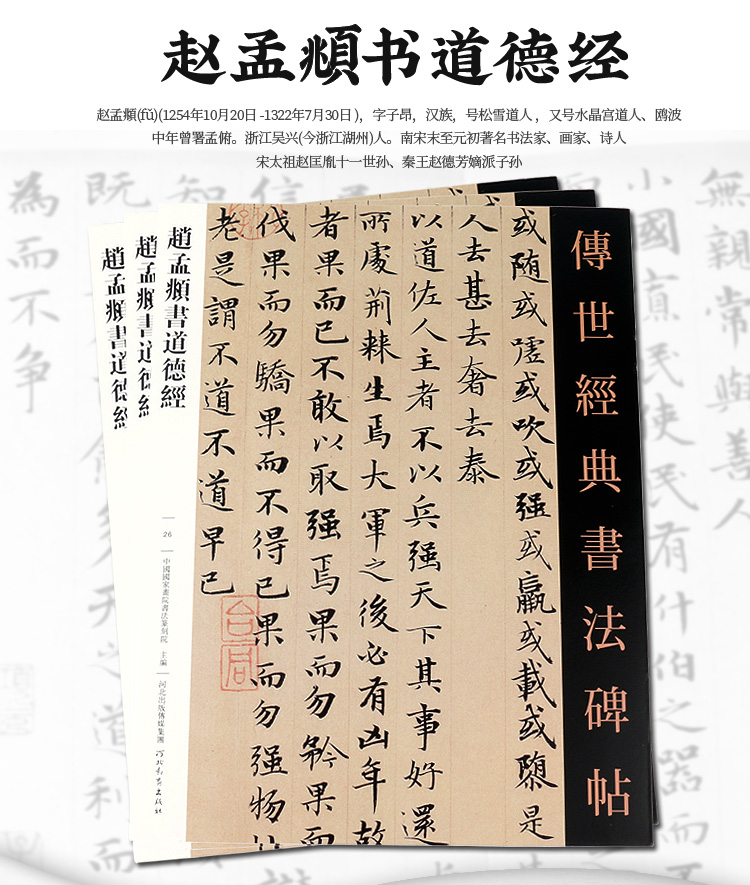 赵孟頫书道德经
赵孟頫(fǔ)(1254年10月20日 -1322年7月30日 )，字子昂，汉族，号松雪道人 ，又号水晶宫道人、鸥波
中年曾署孟俯。浙江吴兴(今浙江湖州)人。南宋末至元初著名书法家、画家、诗人
宋太祖赵匡胤十一世孙、秦王赵德芳嫡派子孙
傳世經典書法碑帖
或随或嘘或吹或强或羸或載或隳是
人去甚去奢去泰
以道佐人主者不以兵强天下其事好還
所處荆棘生焉大軍之後必有凶年故
者果而已不敢以取强焉果而勿矜果而
伐果而勿驕果而不得已果而勿强物
老是謂不道不道早已
趙孟頫書道德經
26
中國國家畫院書法篆刻院 主編
河北出版傳媒集團
河北教育出版社
趙孟頫書道德經
趙孟頫書道德經
無親常與善人
小國寡民使民有什伯之器而
信
知
既
為而不争